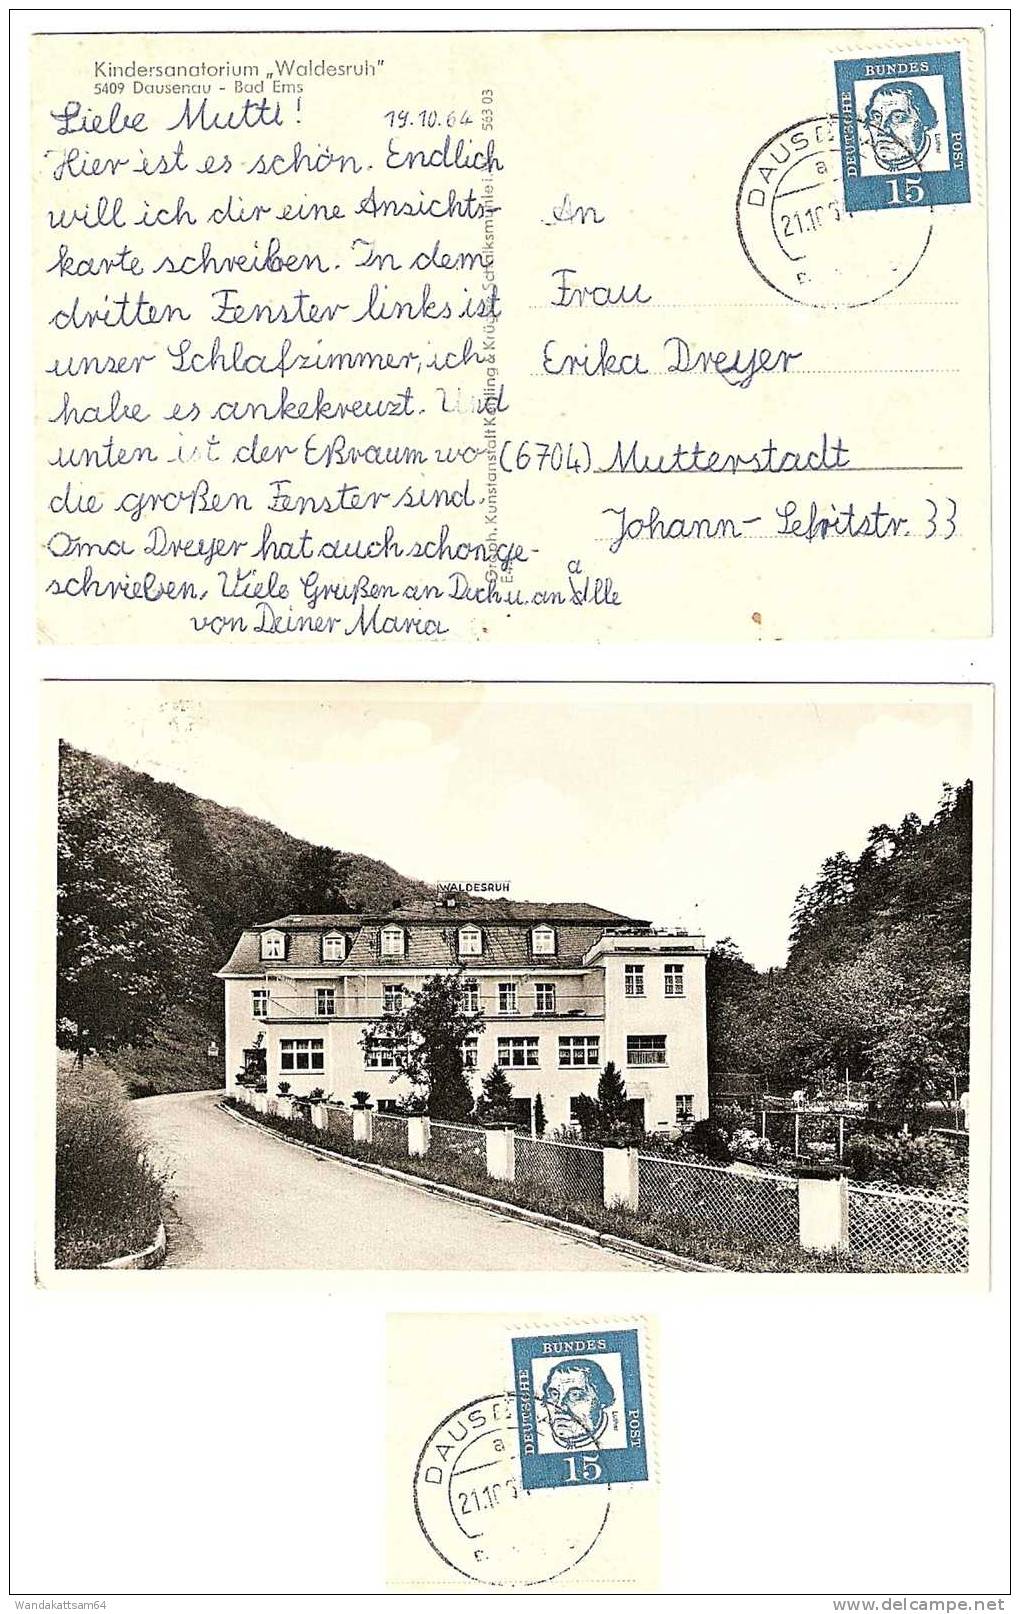 Kindersanatorium „Waldesruh"
5409 Dausenau - Bad Ems
Liebe Mutti!
19.10.64
Hier ist es schön. Endlich
will ich dir eine Ansichts-
karte schreiben. In dem
dritten Fenster links ist
unser Schlafzimmer, ich
habe es ankekreuzt. Und
unten ist der Eßraum wo
die großen Fenster sind.
Oma Dreyer hat auch schon ge-
schrieben, Viele Grüßen an Dich u. an a Alle
von Deiner Maria
563 03
Graph. Kunstanstalt Kehling & Krüger Schalksmühle i.
An
Frau
Erika Dreyer
(6704) Mutterstadt
Johann- Sefritstr. 33
DEUTSCHE BUNDES POST
Luther
15
DAUS
a
21.10.
WALDESRUH
DEUTSCHE BUNDES POST
Luther
15
DAUS
a
21.10.
Wandakattsam64
delcampe.net